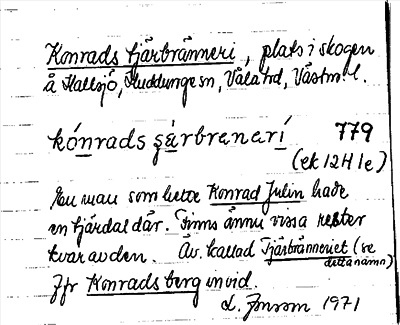 Konrads tjärbränneri, plats i skogen
å Hallsjö, Huddunge sn, Våla hd, Västm l.
kónrads şärbrenerí 779
(ek 12H 1e)
En man som hette Konrad Julin hade
en tjärdal där. Finns ännu vissa rester
kvar av den. Äv. kallad Tjärbränneriet (se
detta namn)
Jfr Konradsberg invid.
L. Jonsson 1971